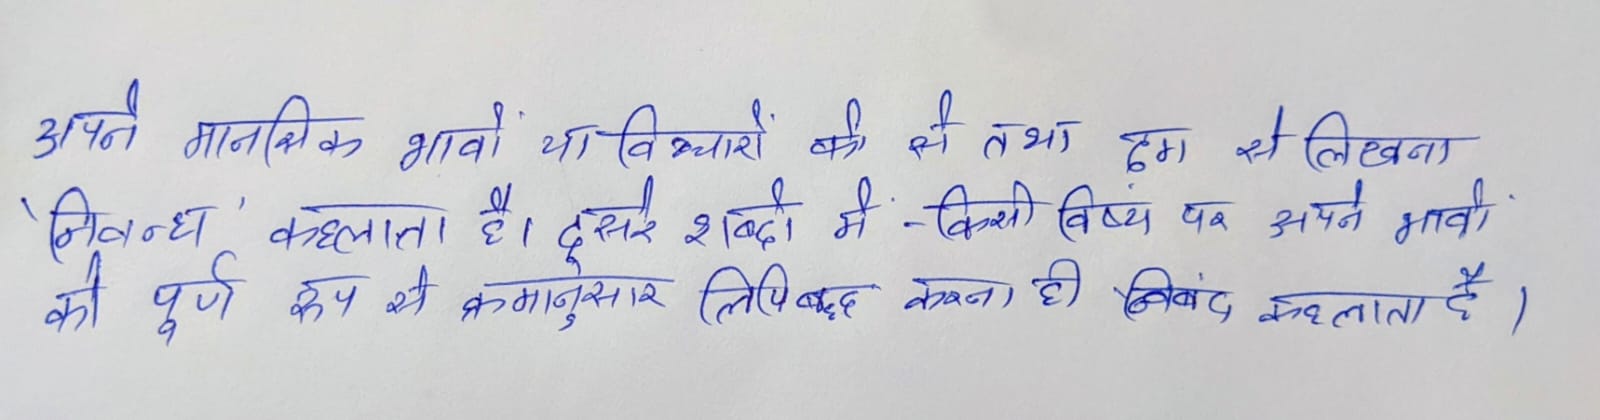 अपने मानसिक भावों या विचारों को से तथा ढ़ग से लिखना
'निबन्ध' कहलाता है। दूसरे शब्दो में - किसी विषय पर अपने भावों
को पूर्ण रूप से क्रमानुसार लिपिबद्ध करना ही निबंद कहलाता है।